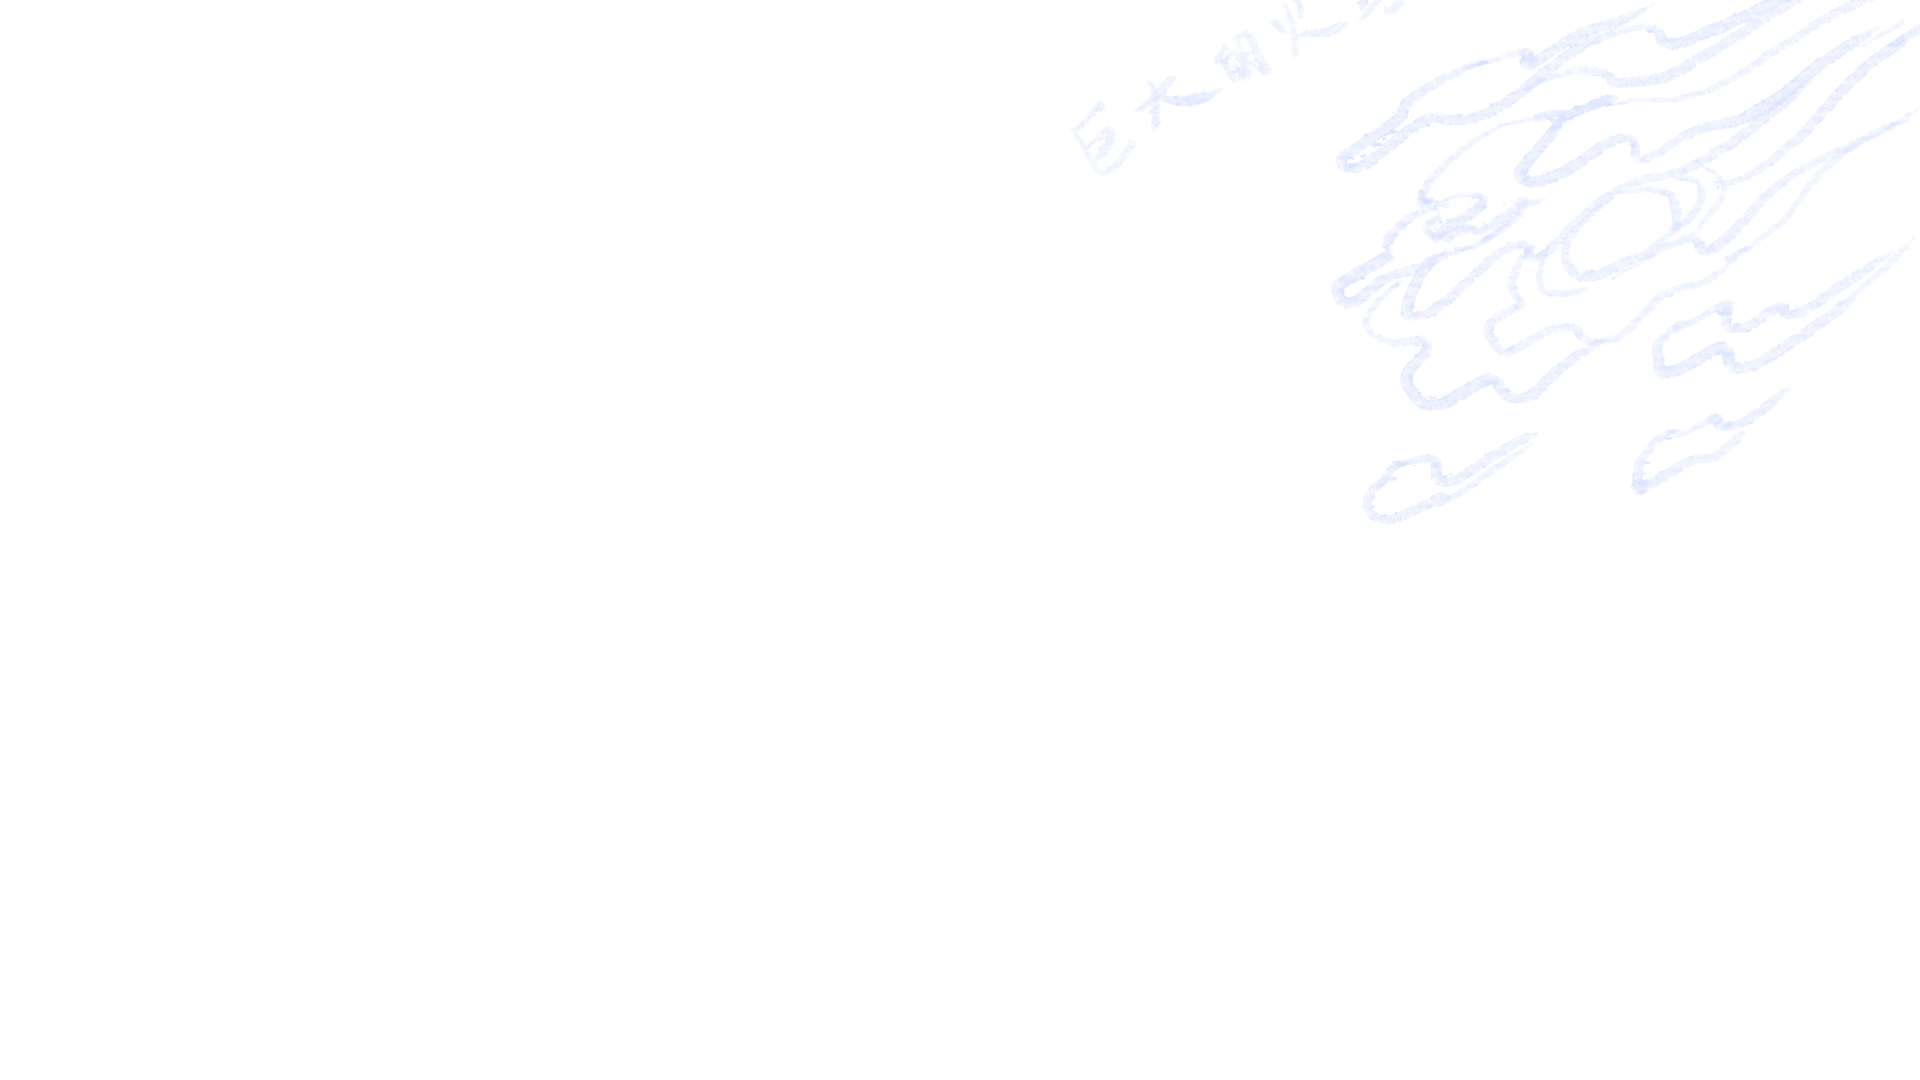 巨大的火